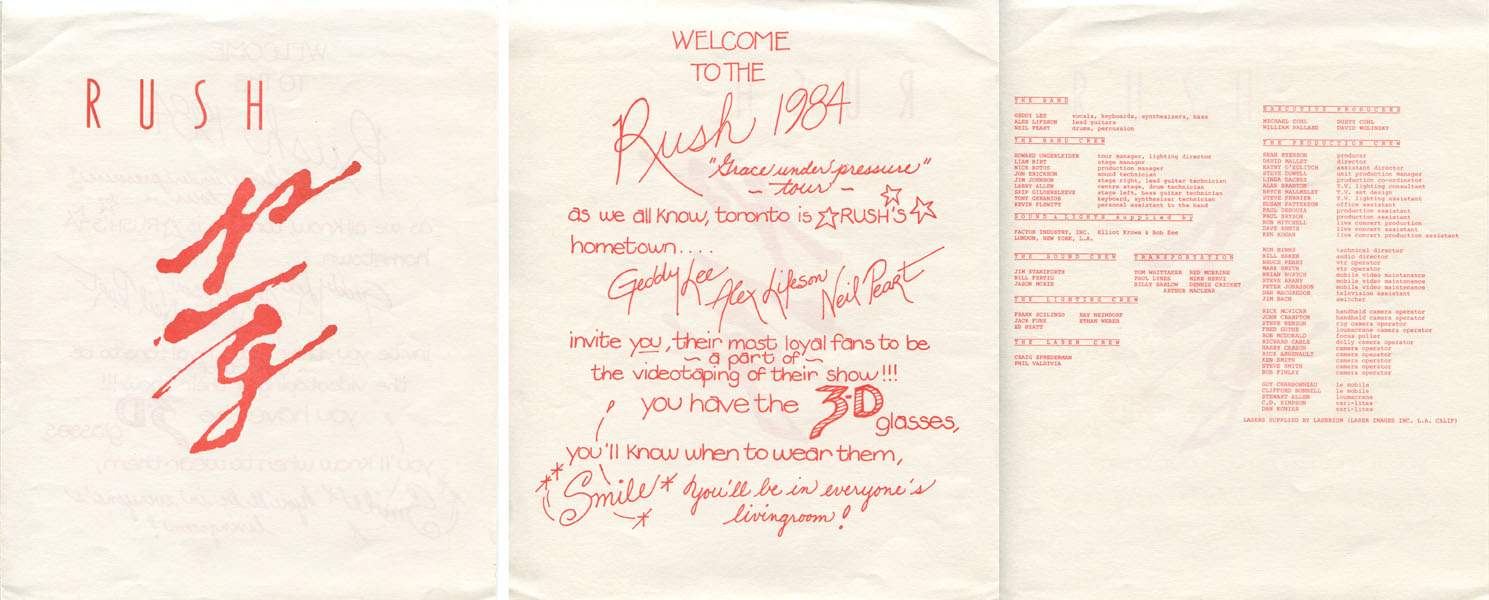 RUSH
WELCOME
TO THE
Rush 1984
"Grace under pressure"
~ tour ~
as we all know, toronto is ☆RUSH'S☆
hometown....
Geddy Lee Alex Lifeson Neil Peart
invite you, their most loyal fans to be
~ a part of ~
the videotaping of their show!!!
you have the 3-D
glasses,
you'll know when to wear them,
Smile * you'll be in everyone's
livingroom!
THE BAND
GEDDY LEE vocals, keyboards, synthesizers, bass
ALEX LIFESON lead guitars
NEIL PEART drums, percussion
THE BAND CREW
HOWARD UNGERLEIDER tour manager, lighting director
LIAM BIRT stage manager
NICK KOTOS production manager
JON ERICKSON sound technician
JIM JOHNSON stage right, lead guitar technician
LARRY ALLEN centre stage, drum technician
SKIP GILDERSLEEVE stage left, bass guitar technician
TONY GERANIOS keyboard, synthesizer technician
KEVIN FLEWITT personal assistant to the band
SOUND & LIGHTS supplied by
FACTOR INDUSTRY, INC. Elliot Krowe & Bob See
LONDON, NEW YORK, L.A.
THE SOUND CREW
JIM STANIFORTH
BILL FERTIG
JASON MCRIE
TRANSPORTATION
TOM WHITTAKER RED MCBRINE
PAUL LYNES MIKE HERVI
BILLY BARLOW DENNIS CRICKET
ARTHUR MACLEAR
THE LIGHTING CREW
FRANK SCILINGO RAY NEINDORF
JACK FUNK ETHAN WEBER
ED HYATT
THE LASER CREW
CRAIG SPREDERMAN
PHIL VALDIVIA
EXECUTIVE PRODUCERS
MICHAEL COHL DUSTY COHL
WILLIAM BALLARD DAVID WOLINSKY
THE PRODUCTION CREW
SEAN RYERSON producer
DAVID MALLET director
KATHY O'KOLITCH assistant director
STEVE COWELL unit production manager
LINDA DACHUS production co-ordinator
ALAN BRANTON T.V. lighting consultant
BRYCE WALLMSLEY T.V. set design
STEVE FERRIER T.V. lighting assistant
SUSAN PATTERSON office assistant
PAUL DESOUZA production assistant
PAUL BRYSON production assistant
BOB MITCHELL live concert production
DAVE ANNIS live concert assistant
KEN KOGAN live concert production assistant
RON BINKS technical director
BILL BAKER audio director
BRUCE PEARY vtr operator
MARK SMITH vtr operator
BRIAN WORTCH mobile video maintenance
STEVE ARANY mobile video maintenance
PETER JURASSON mobile video maintenance
DAN MACGREGOR television assistant
JIM BACH switcher
RICK MCVICAR handheld camera operator
JOHN CRAMPTON handheld camera operator
STEVE BENSON rig camera operator
FRED GUTHE loumacrane camera operator
ROB MCDONALD focus puller
RICHARD CABLE dolly camera operator
HARRY CARSON camera operator
RICK ARSENAULT camera operator
KEN SMITH camera operator
STEVE SMITH camera operator
BOB FINLAY camera operator
GUY CHARBONNEAU le mobile
CLIFFORD BONNELL le mobile
STEWART ALLEN loumacrane
C.D. SIMPSON vari-lites
DAN KOHLER vari-lites
LASERS SUPPLIED BY LASERIUM (LASER IMAGES INC, L.A. CALIF)